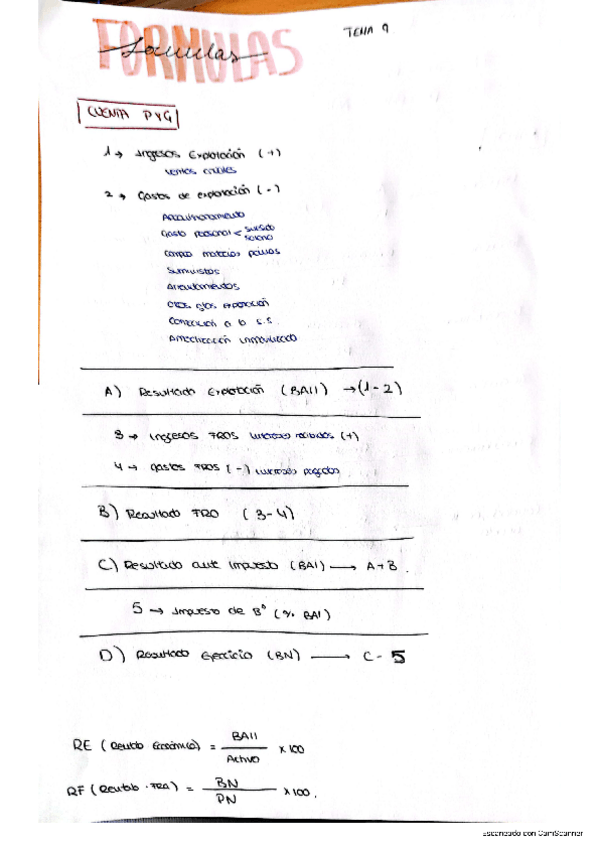 FORMULAS
Formulas
TEMA 9
CUENTA PYG
1 → Ingresos Explotación (+)
ventas
2 → Gastos de explotación (-)
Gasto personal < sueldo
compra materias primas
Suministros
Arrendamientos
Amortización inmovilizado
A) Resultado Explotación (BAII) → (1-2)
3 → Ingresos FROS intereses recibidos (+)
4 → Gastos FROS (-) intereses pagados
B) Resultado FRO (3-4)
C) Resultado ante Impuesto (BAI) → A+B.
5 → Impuesto de Bº (% BAI)
D) Resultado Ejercicio (BN) → C - 5
RE (Rentab Económica) = BAII / Activo x 100
RF (Rentab. FRA) = BN / PN x 100.
Escaneado con CamScanner